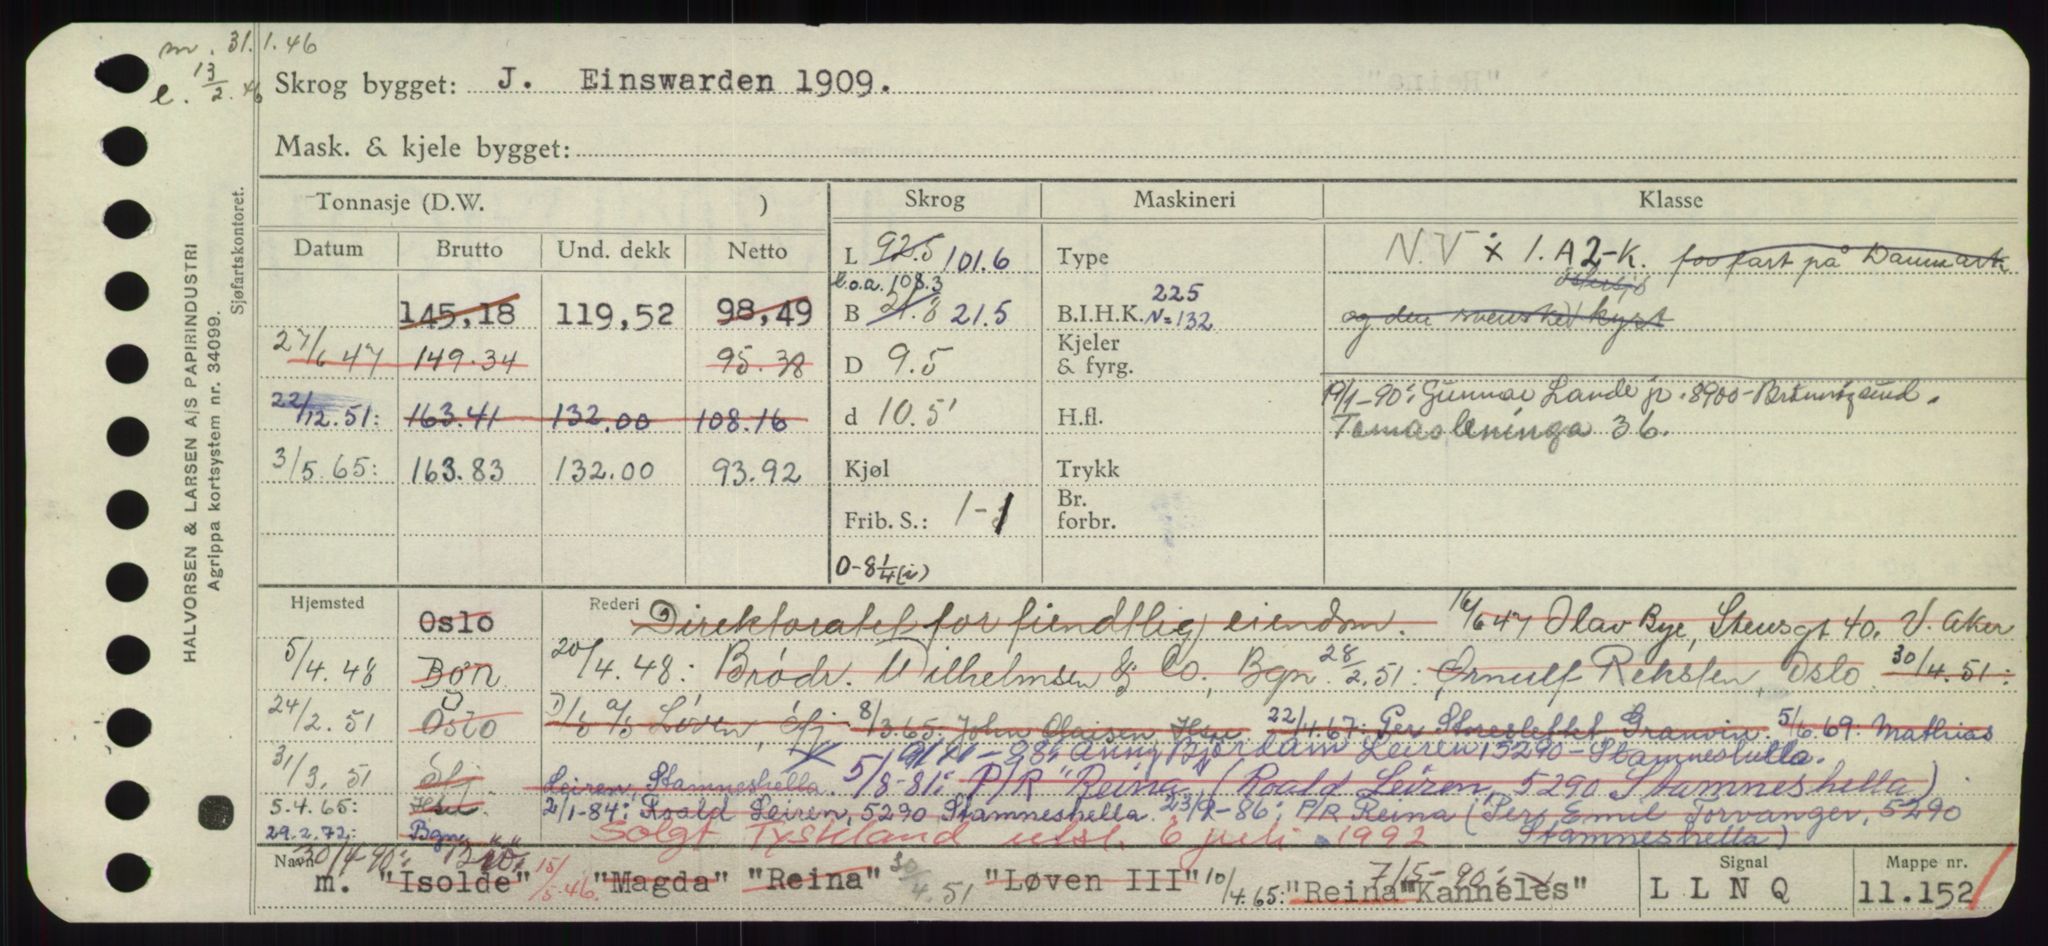 m. 31.1.46
e. 13/2.46
Skrog bygget: J. Einswarden 1909.
Mask. & kjele bygget:
HALVORSEN & LARSEN A/S PAPIRINDUSTRI
Agrippa kortsystem nr. 34099.
Sjøfartskontoret.
Tonnasje (D.W. ) Skrog Maskineri Klasse
Datum Brutto Und. dekk Netto
L 92.5 101.6 Type N.V x 1.A2-K. for fart på Danmark
l.o.a. 108.3
østersjø
145,18 119,52 98,49 B 21.5 B.I.H.K. 225 N=132 og den svenske kyst
27/6 47 149.34 95.38 D 9.5 Kjeler & fyrg.
19/1-90: Gunnar Lande jr. 8900-Brønnøysund.
22/12.51: 163.41 132.00 108.16 d 10.5' H.fl. 36.
3/5.65: 163.83 132.00 93.92 Kjøl Trykk
Frib. S.: 1-1 Br. forbr.
0-8 1/4 (i)
Hjemsted Oslo Rederi Direktoratet for fiendtlig eiendom. 16/6 47 Olav Bye, Stensgt 40. V. Aker
5/4.48 Bgn 20/4.48: Brødr. Wilhelmsen & Co., Bgn. 28/2.51: Ørnulf Reksten, Oslo 30/4.51:
24/2.51 Oslo A/S Løven, 8/3.65. John Olaisen 22/4.67: Per Storeslettet Granvin. 5/6.69: Mathias
-98: Anny Bjørdam Leiren, 5290-Stamneshella.
31/3.51 Leiren, Stamneshella. 5/8-81: P/R "Reina (Roald Leiren, 5290 Stamneshella)
5.4.65: 2/1-84: Roald Leiren, 5290 Stamneshella. -86: P/R Reina (Pers Emil Torvanger, 5290
29.2.72: Bgn. Solgt Tyskland utsl. 6 juli 1992 Stamneshella)
Navn 30/4-90: 7/5-90: Signal Mappe nr.
m. "Isolde" 15/5.46. "Magda" "Reina" 30/4.51 "Løven III" 10/4.65: "Reina" Kanneles" L L N Q 11.152